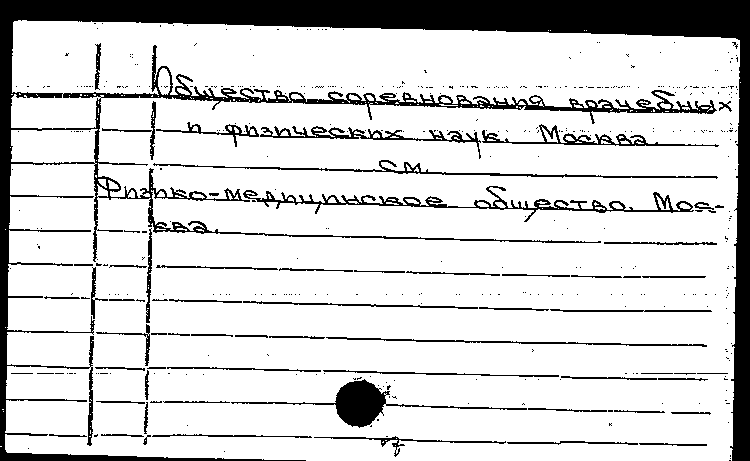 Общество соревнования врачебных
и физических наук. Москва.
см.
Физико-медицинское общество. Мос-
ква.